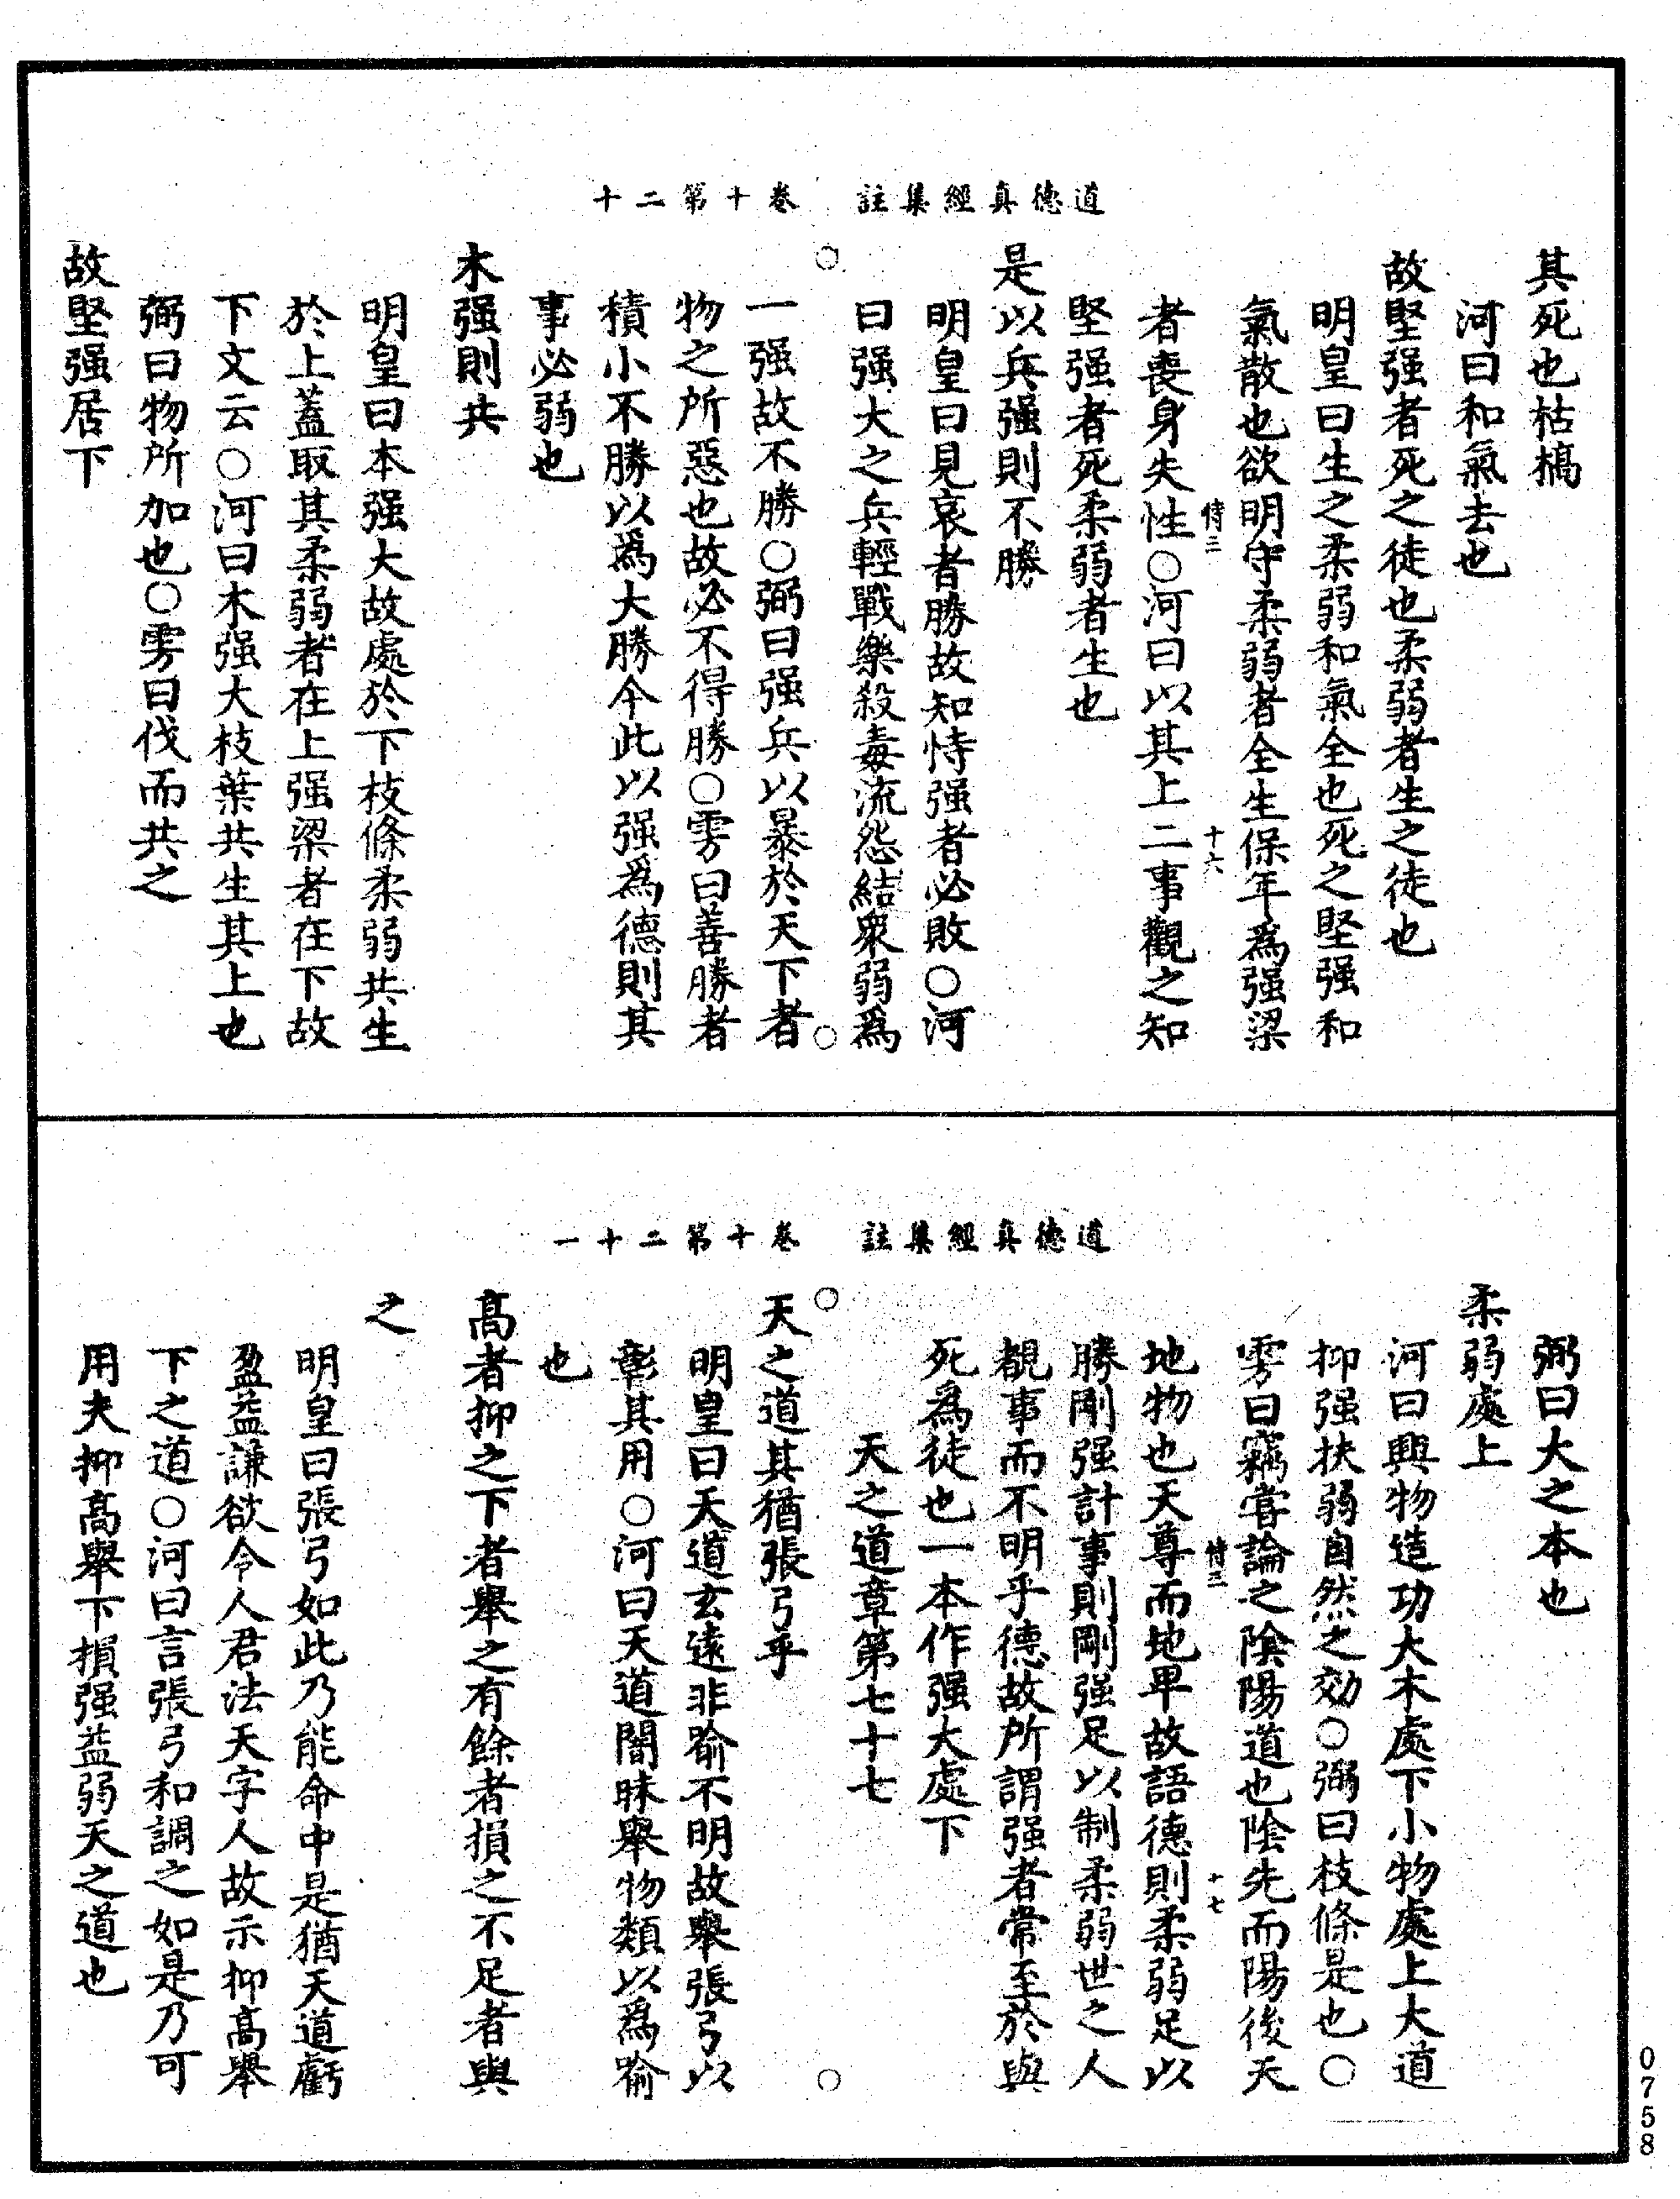 道德真經集註　卷十第二十
其死也枯槁
河曰和氣去也
故堅强者死之徒也柔弱者生之徒也
明皇曰生之柔弱和氣全也死之堅强和
氣散也欲明守柔弱者全生保年爲强梁
恃三　十六
者喪身失性○河曰以其上二事觀之知
堅强者死柔弱者生也
是以兵强則不勝
明皇曰見哀者勝故知恃强者必敗○河
曰强大之兵輕戰樂殺毒流怨結衆弱爲
○　○
一强故不勝○弼曰强兵以暴於天下者
物之所惡也故必不得勝○雱曰善勝者
積小不勝以爲大勝今此以强爲德則其
事必弱也
木强則共
明皇曰本强大故處於下枝條柔弱共生
於上蓋取其柔弱者在上强梁者在下故
下文云○河曰木强大枝葉共生其上也
弼曰物所加也○雱曰伐而共之
故堅强居下
道德真經集註　卷十第二十一
弼曰大之本也
柔弱處上
河曰興物造功大木處下小物處上大道
抑强扶弱自然之効○弼曰枝條是也○
雱曰竊甞論之陰陽道也陰先而陽後天
恃三　十七
地物也天尊而地卑故語德則柔弱足以
勝剛强計事則剛强足以制柔弱世之人
覩事而不明乎德故所謂强者常至於與
死爲徒也一本作强大處下
天之道章第七十七
○　○
天之道其猶張弓乎
明皇曰天道玄遠非喻不明故舉張弓以
彰其用○河曰天道闇昧舉物類以爲喻
也
高者抑之下者舉之有餘者損之不足者與
之
明皇曰張弓如此乃能命中是猶天道虧
盈益謙欲令人君法天字人故示抑高舉
下之道○河曰言張弓和調之如是乃可
用夫抑高舉下損强益弱天之道也
0758